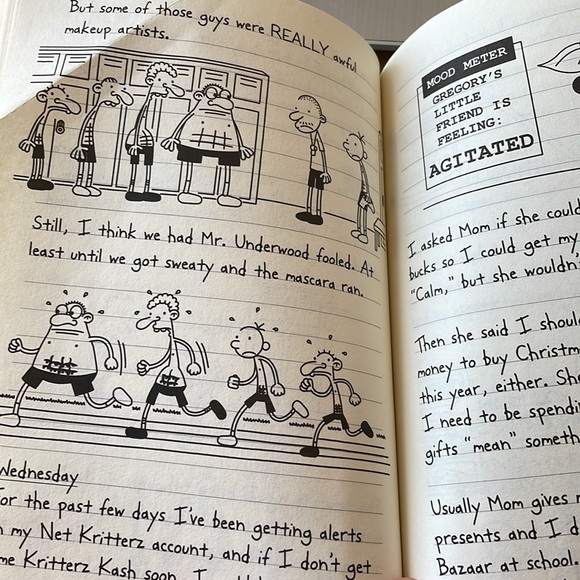 But some of those guys were REALLY awful
makeup artists.
Still, I think we had Mr. Underwood fooled. At
least until we got sweaty and the mascara ran.
Wednesday
For the past few days I've been getting alerts
my Net Kritterz account, and if I don't get
Kritterz Kash soon, I
MOOD METER
GREGORY'S
LITTLE
FRIEND IS
FEELING:
AGITATED
I asked Mom if she could
bucks so I could get my
"Calm," but she wouldn't
Then she said I
money to buy
this year, either.
I need to be
gifts "mean"
Usually Mom gives
presents and I
Bazaar at school.